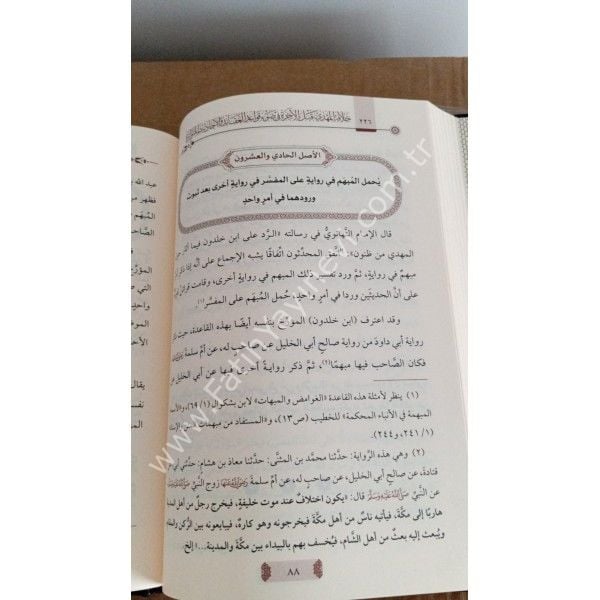 ٢٢٦
الأصل الحادي والعشرون
يُحمل المُبهَم في روايةٍ على المفسَّر في روايةٍ أخرى بعد ثبوت
ورودهما في أمرٍ واحدٍ
قال الإمام التَّهانويُّ في رسالته «الرَّد على ابن خلدون فيما
المهدي من ظنون»: اتَّفق المحدِّثون اتِّفاقًا يشبه الإجماع على أنَّه إذا ذُكر
مبهمٌ في روايةٍ، ثمَّ ورد تفسير ذلك المبهم في روايةٍ أخرى، وقامت قرائن
على أنَّ الحديثين وردا في أمرٍ واحدٍ، حُمل المُبهَم على المفسَّر(١).
وقد اعترف (ابن خلدون) المؤرِّخ بنفسه أيضًا بهذه القاعدة، حيث ذكر
رواية أبي داودَ من رواية صالحٍ أبي الخليل عن صاحبٍ له، عن أمِّ سلمةَ
فكان الصَّاحب فيها مبهمًا(٢)، ثمَّ ذكر روايةً أخرى فيها عن أبي الخليل عن
(١) ينظر لأمثلة هذه القاعدة «الغوامض والمبهمات» لابن بشكوال (١/ ٦٩)، و«الأسماء
المبهمة في الأنباء المحكمة» للخطيب (ص١٣)، و«المستفاد من مبهمات
(١/ ٢٤١، و٢٤٤).
(٢) وهي هذه الرِّواية: حدَّثنا محمَّد بن المثنَّى: حدَّثنا معاذ بن هشام: حدَّثني أبي عن
قتادةَ، عن صالحٍ أبي الخليل، عن صاحبٍ له، عن أمِّ سلمةَ رَضِيَ اللَّهُ عَنْهَا زوج النَّبيِّ صَلَّى اللَّهُ عَلَيْهِ وَسَلَّمَ
عن النَّبيِّ صَلَّى اللَّهُ عَلَيْهِ وَسَلَّمَ قال: «يكون اختلافٌ عند موت خليفةٍ، فيخرج رجلٌ من أهل المدينة
هاربًا إلى مكَّةَ، فيأتيه ناسٌ من أهل مكَّةَ فيخرجونه وهو كارهٌ، فيبايعونه بين الرُّكن والمقام،
ويُبعث إليه بعثٌ من أهل الشَّام، فيُخسف بهم بالبيداء بين مكَّةَ والمدينة...» إلخ.
٨٨
www.FatihYayinevi.com.tr